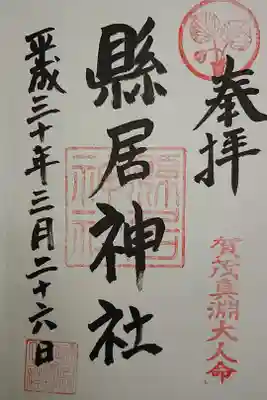 奉拝
賀茂真淵大人命
縣居神社
平成三十年三月二十六日